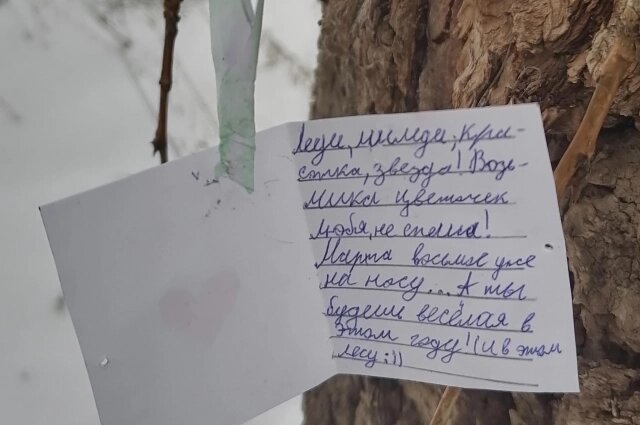 Леди, миледи, кра-
сотка, звезда! Возь-
мика цветочек
любя, не спеша!
Марта восьмое уже
на носу... А ты
будешь весёлая в
этом году! (И в этом
лесу :))